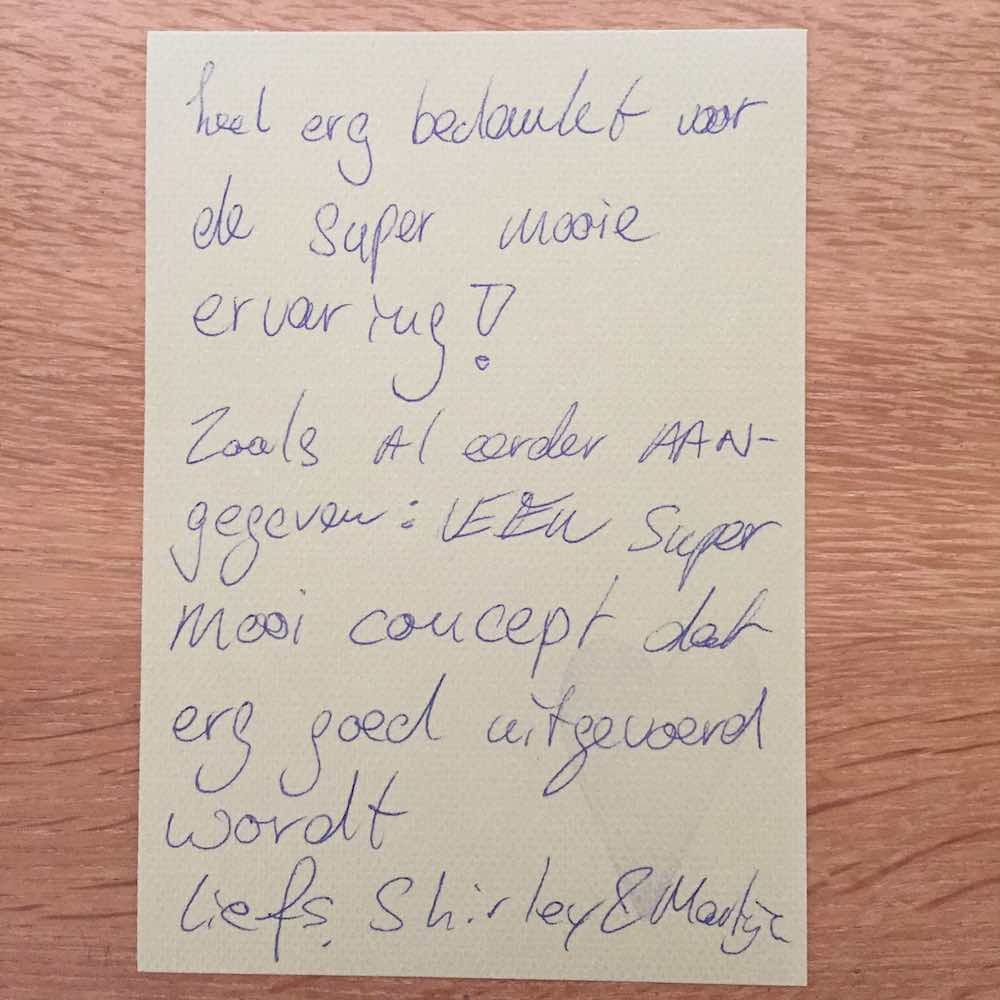 heel erg bedankt voor
de super mooie
ervaring!
Zoals Al eerder AAN-
gegeven: EEN super
mooi concept dat
erg goed uitgevoerd
wordt
Liefs, Shirley & Martijn